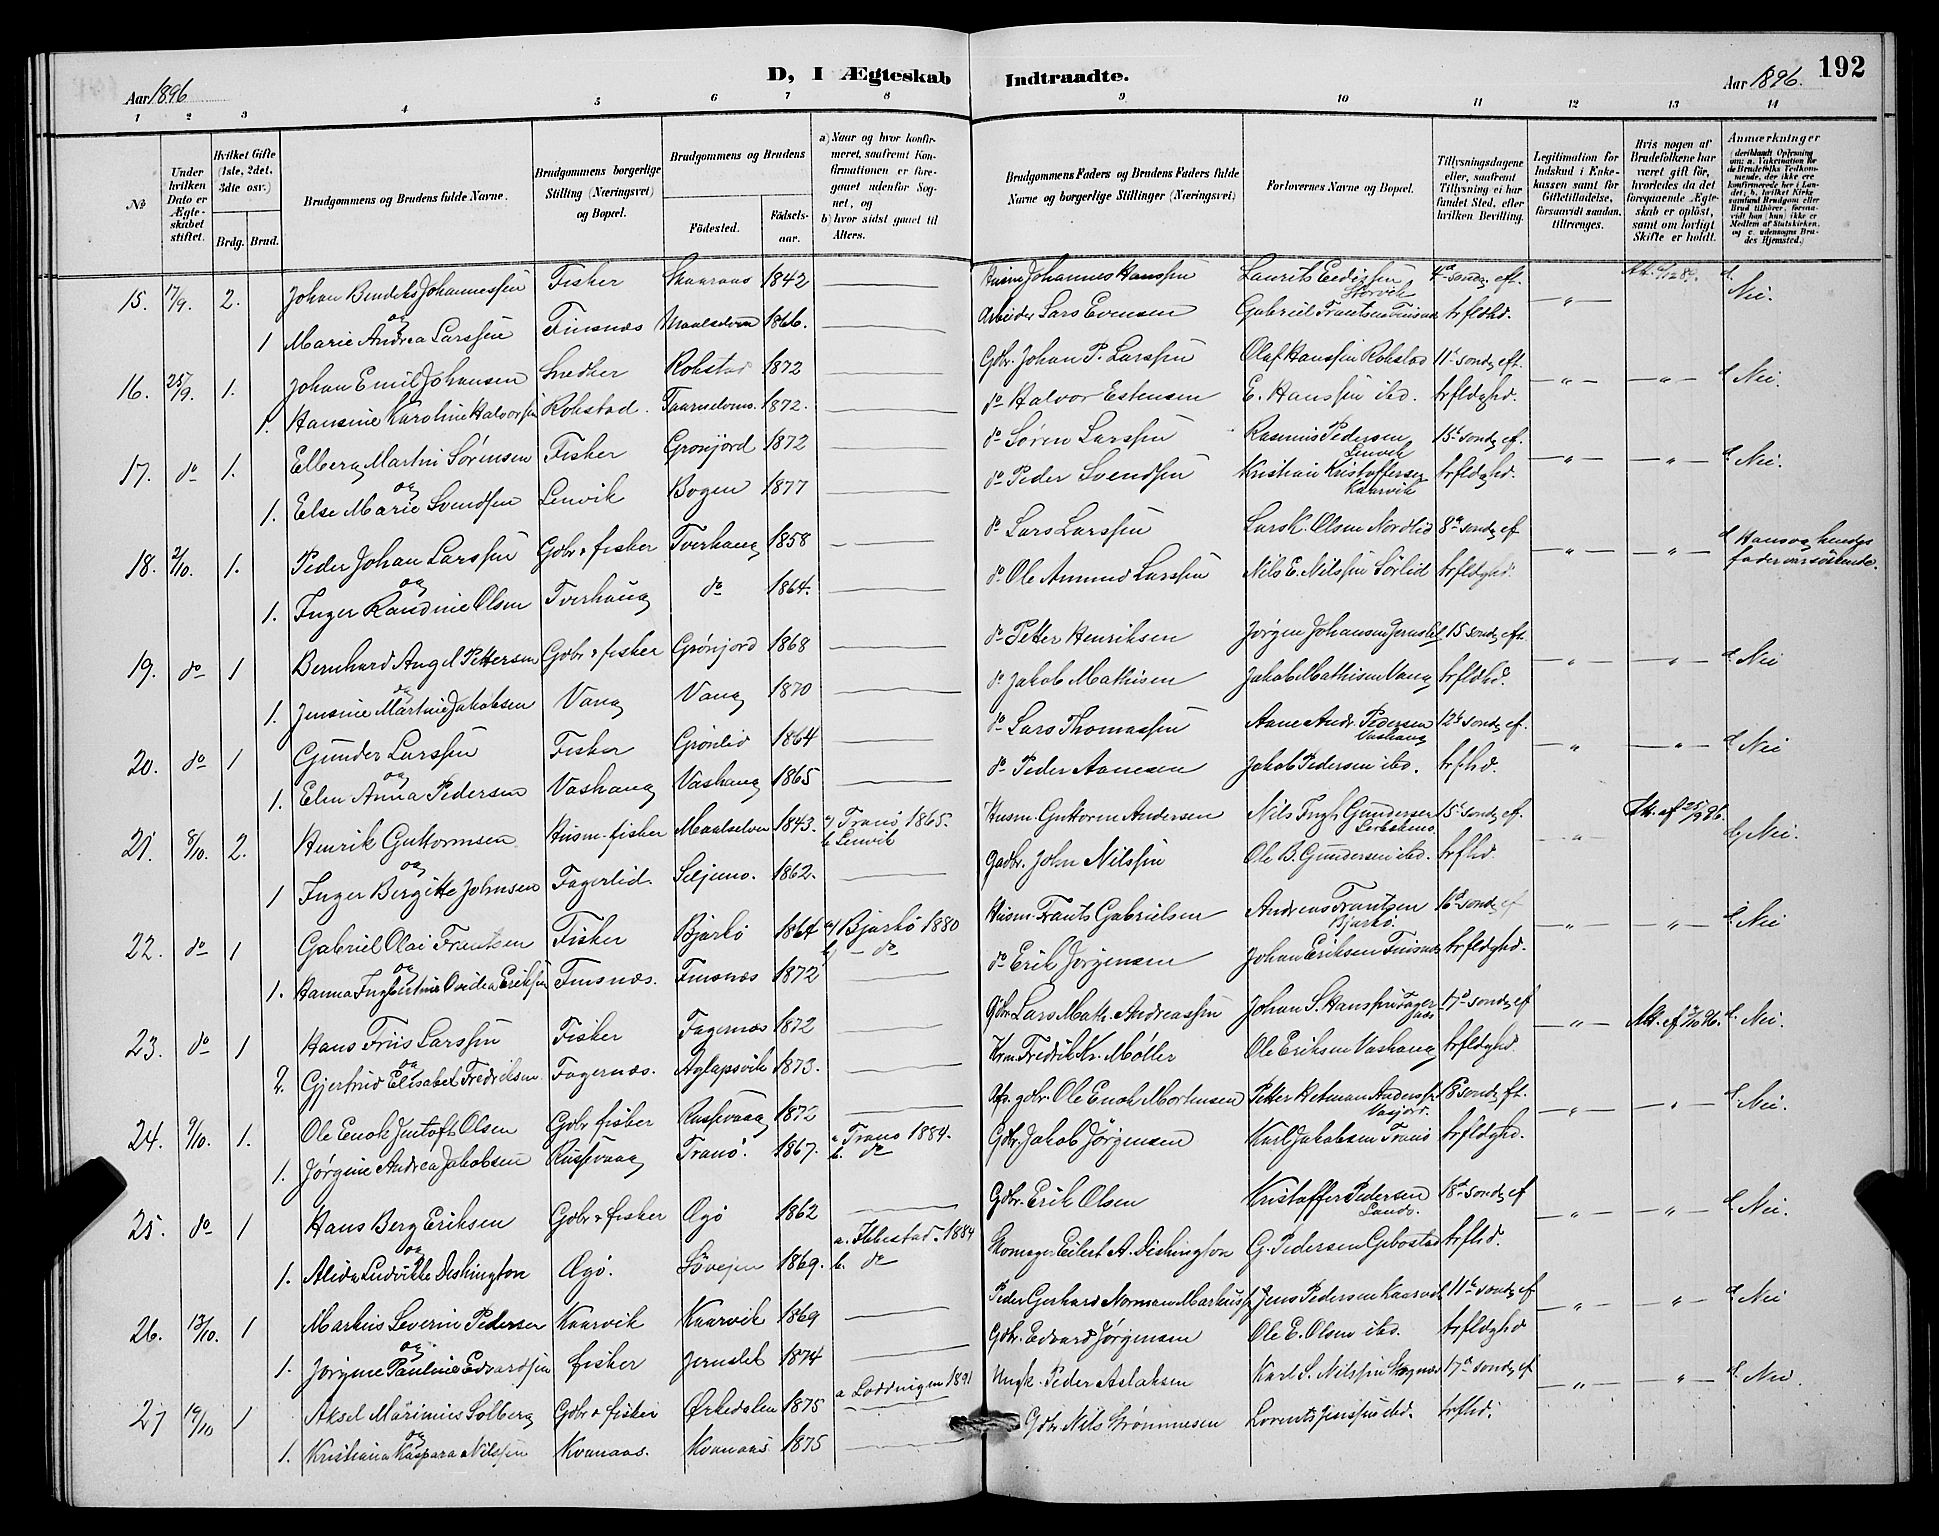 192
D, I Ægteskab Indtraadte.
Aar 1896
Aar 1896.
1 2 3 4 5 6 7 8 9 10 11 12 13 14
No
Under hvilken Dato er Ægteskabet stiftet.
Hvilket Gifte (1ste, 2det, 3die osv.)
Brdg. Brud.
Brudgommens og Brudens fulde Navne.
Brudgommens borgerlige Stilling (Næringsvei) og Bopæl.
Brudgommens og Brudens
Fødested. Fødselsaar.
a) Naar og hvor konfirmeret, saafremt Konfirmationen er foregaaet udenfor Sognet, og
b) hvor sidst gaaet til Alters.
Brudgommens Faders og Brudens Faders fulde Navne og borgerlige Stillinger (Næringsvei)
Forlovernes Navne og Bopæl.
Tillysningsdagene eller, saafremt Tillysning ei har fundet Sted, efter hvilken Bevilling.
Legitimation for Indskud i Enkekassen samt for Giftetilladelse, forsaavidt saadan tiltrænges.
Hvis nogen af Brudefolkene har været gift før, hvorledes da det foregaaende Ægteskab er opløst, samt om lovligt Skifte er holdt.
Anmærkninger
15. 17/9. 2. Johan Bendits Johannessen Fisker Skaaraas 1842 Husm Johannes Hanssen Laurits Eedissen Storvik 4de sond. eft. Nei.
og
1 Marie Andrea Larssen Finsnæs Maalselven 1866. Arbeider Lars Evensen Gabriel Frantsen Finsnæs trfldhd.
16. 25/9. 1. Johan Emil Johansen Snedker Rokstad 1872 Gdbr. Johan P. Larssen Olaf Hanssen Rokstad 11te sond. eft. Nei.
1. Hansine Karoline Halvorsen Rokstad. 1872. do Halvor Estensen E. Hanssen ibd. trfldghd.
17. do 1. Elberg Martin Sørensen Fisker Grønjord 1872 do Søren Larssen Rasmus Pedersen Lenvik 15de sond. ef. Nei.
og
1. Else Marie Svendsen Lenvik Bogen 1877 do Peder Svendsen Kristian Kristoffersen Kaarvik trfldghd.
18. 2/10. 1. Peder Johan Larssen Gdbr & fisker Tverhaug 1858 do Lars Larssen Lars K. Olsen Nordlid 8de sond. ef Hans og hendes
og
1. Inger Randine Olsen Tverhaug do 1864. do Ole Amund Larssen Nils E. Nilssen Sørlid trfldghd. fader var søskende.
19. do 1 Bernhard Angel Pettersen Gdbr & fisker Grønjord 1868 do Petter Henriksen Jørgen Johansen Jernslet 15 sond. eft. Nei
og
1. Jensine Martine Jakobsen Vang Vang 1870 do Jakob Mathisen Jakob Mathisen Vang trfldhd.
20. do 1 Gunder Larssen Fisker Grønlid 1864 do Lars Thomassen Aane Andr. Pedersen Vashaug 12te sond. ef. Nei
og
1. Elen Anna Pedersen Vashaug Vashaug 1865 do Peder Aanesen Jakob Pedersen ibd. trflhd.
21. 8/10. 2. Henrik Guttormsen Husm. fisker Maalselven 1843. a) Tranø 1865. b Lenvik Husm. Guttorm Andersen Nils Ingb Gundersen 15de sond. ef Att. af 25/9 96. Nei.
og
1 Inger Bergitte Johnsen Fagerlid. Seljemo. 1862. Gadbr. John Nilssen Ole B. Gundersen ibd. trflhd
22. do 1 Gabriel Olai Frantsen Fisker Bjarkø 1864 a) Bjarkø 1880 b) - do Husm. Frants Gabrielsen Andreas Frantsen Bjarkø. 16de sond. ef Nei
og
1. Hanna Ingbertine Ovedia Eriksen Finsnæs. Finsnæs 1872 do Erik Jørgensen Johan Eriksen Finsnæs trfldghd.
23. do 1 Hans Friis Larssen Fisker Fagernæs 1872 Gdbr Lars Math. Andreassen Johan S. Hanssen Fagernæs 17de sond. ef Att. ef 96. Nei.
og
2. Gjertrud Elisabet Fredriksen Fagernæs. Aglapsvik 1873. Krm. Fredrik Kr. Møller Ole Eriksen Vashaug trfldghd.
24. 9/10. 1. Ole Enok Justoft Olsen Gdbr fisker Russevaag 1872 gdbr. Ole Enok Mortensen Petter Hetman Anderssen Vasjord. 18de sond. ft. Nei.
1. Jørgine Andrea Jakobsen Russevaag Tranø. 1867. a. Tranø 1884. b. do Gdbr. Jakob Jørgensen Karl Jakobsen Tranø trfldghd.
25. do 1 Hans Berg Eriksen Gdbr & fisker Øgø 1862 Gdbr. Erik Olsen Kristoffer Pedersen Sandv. 18de sond. ef Nei.
og
1. Alida Ludvikke Dishington Øgø. Søvejen 1869. a. Ibbestad 1884 b. do Skomager Eilert A. Dishington G. Pedersen Gebostad trflhd.
26. 13/10. 1 Markus Severin Pedersen Kaarvik Kaarvik 1869 Peder Gerhard Norman Markussen Jens Pedersen Kaarvik 11te sond. ef Nei
og
1. Jørgine Pauline Edvardsen fisker Jernslet 1874 Gdbr. Edvard Jørgensen Ole E. Olsen ibd. trfldghd
27 19/10 1 Aksel Marinius Solberg Gdbr & fisker Ørkedalen 1875 a Loddingen 1891 Ungk. Peder Aslaksen Karl S. Nilssen 17de sond. ef Nei.
og
1. Kristiana Kaspara Nilssen Kvanaas. Kvanaas 1875 Gdbr Nils Strømmesen Lorents Jenssen ibd. trflhd.